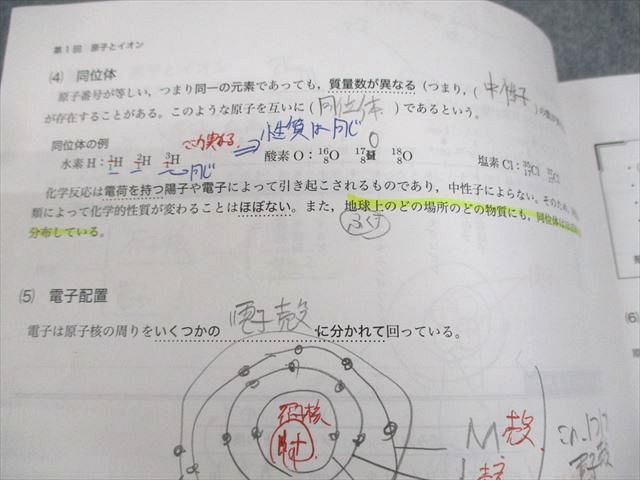 第1回 原子とイオン
(4) 同位体
原子番号が等しい，つまり同一の元素であっても，質量数が異なる（つまり，（ 中性子 ）の数が
が存在することがある。このような原子を互いに（ 同位体 ）であるという。
同位体の例
ここが異なる。 ⇒ 性質は同じ
水素 H：¹₁H ²₁H ³₁H 同じ 酸素 O：¹⁶₈O ¹⁷₈O ¹⁸₈O 塩素 Cl：³⁵₁₇Cl ³⁷₁₇Cl
化学反応は電荷を持つ陽子や電子によって引き起こされるものであり，中性子によらない。そのため，
類によって化学的性質が変わることはほぼない。また，地球上のどの場所のどの物質にも，同位体は
分布している。
(5) 電子配置
電子は原子核の周りをいくつかの 電子殻 に分かれて回っている。
M殻
L殻